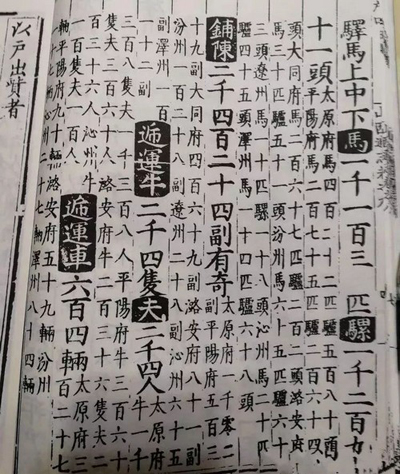 驛馬上中下馬一千一百三 匹騾一千二百
十一頭太原府馬四百二十二匹驢五百八十
平陽府馬二百七十五匹驢二百六十四
頭大同府馬二百六十七匹驢二百二頭路安府
馬三十匹驢五十一頭汾州馬六十五匹驢六十
三頭遼州馬一十匹騾一十八頭沁州馬二十匹
驢四十五頭澤州馬一十四匹驢六十六頭
鋪陳二千四百二十四副有奇太原府一千零二
副平陽府五百三
十九副大同府四百六十九副路安府八十一副
汾州一百三十八副遼州二十八副沁州六十五
副澤州一百
一十二副
遞運牛二千四隻夫二千四人太原府牛一千
三百八隻夫一千三百八人平陽府牛三百六十
隻夫三百六十人路安府牛二百三十六隻夫二
百三十六人沁州牛
一百隻夫一百人
遞運車六百四輛太原府三
百二十七
輛平陽府九十輛路安府五十九輛汾州
二十七輛澤州八十四輛
以戶出費者